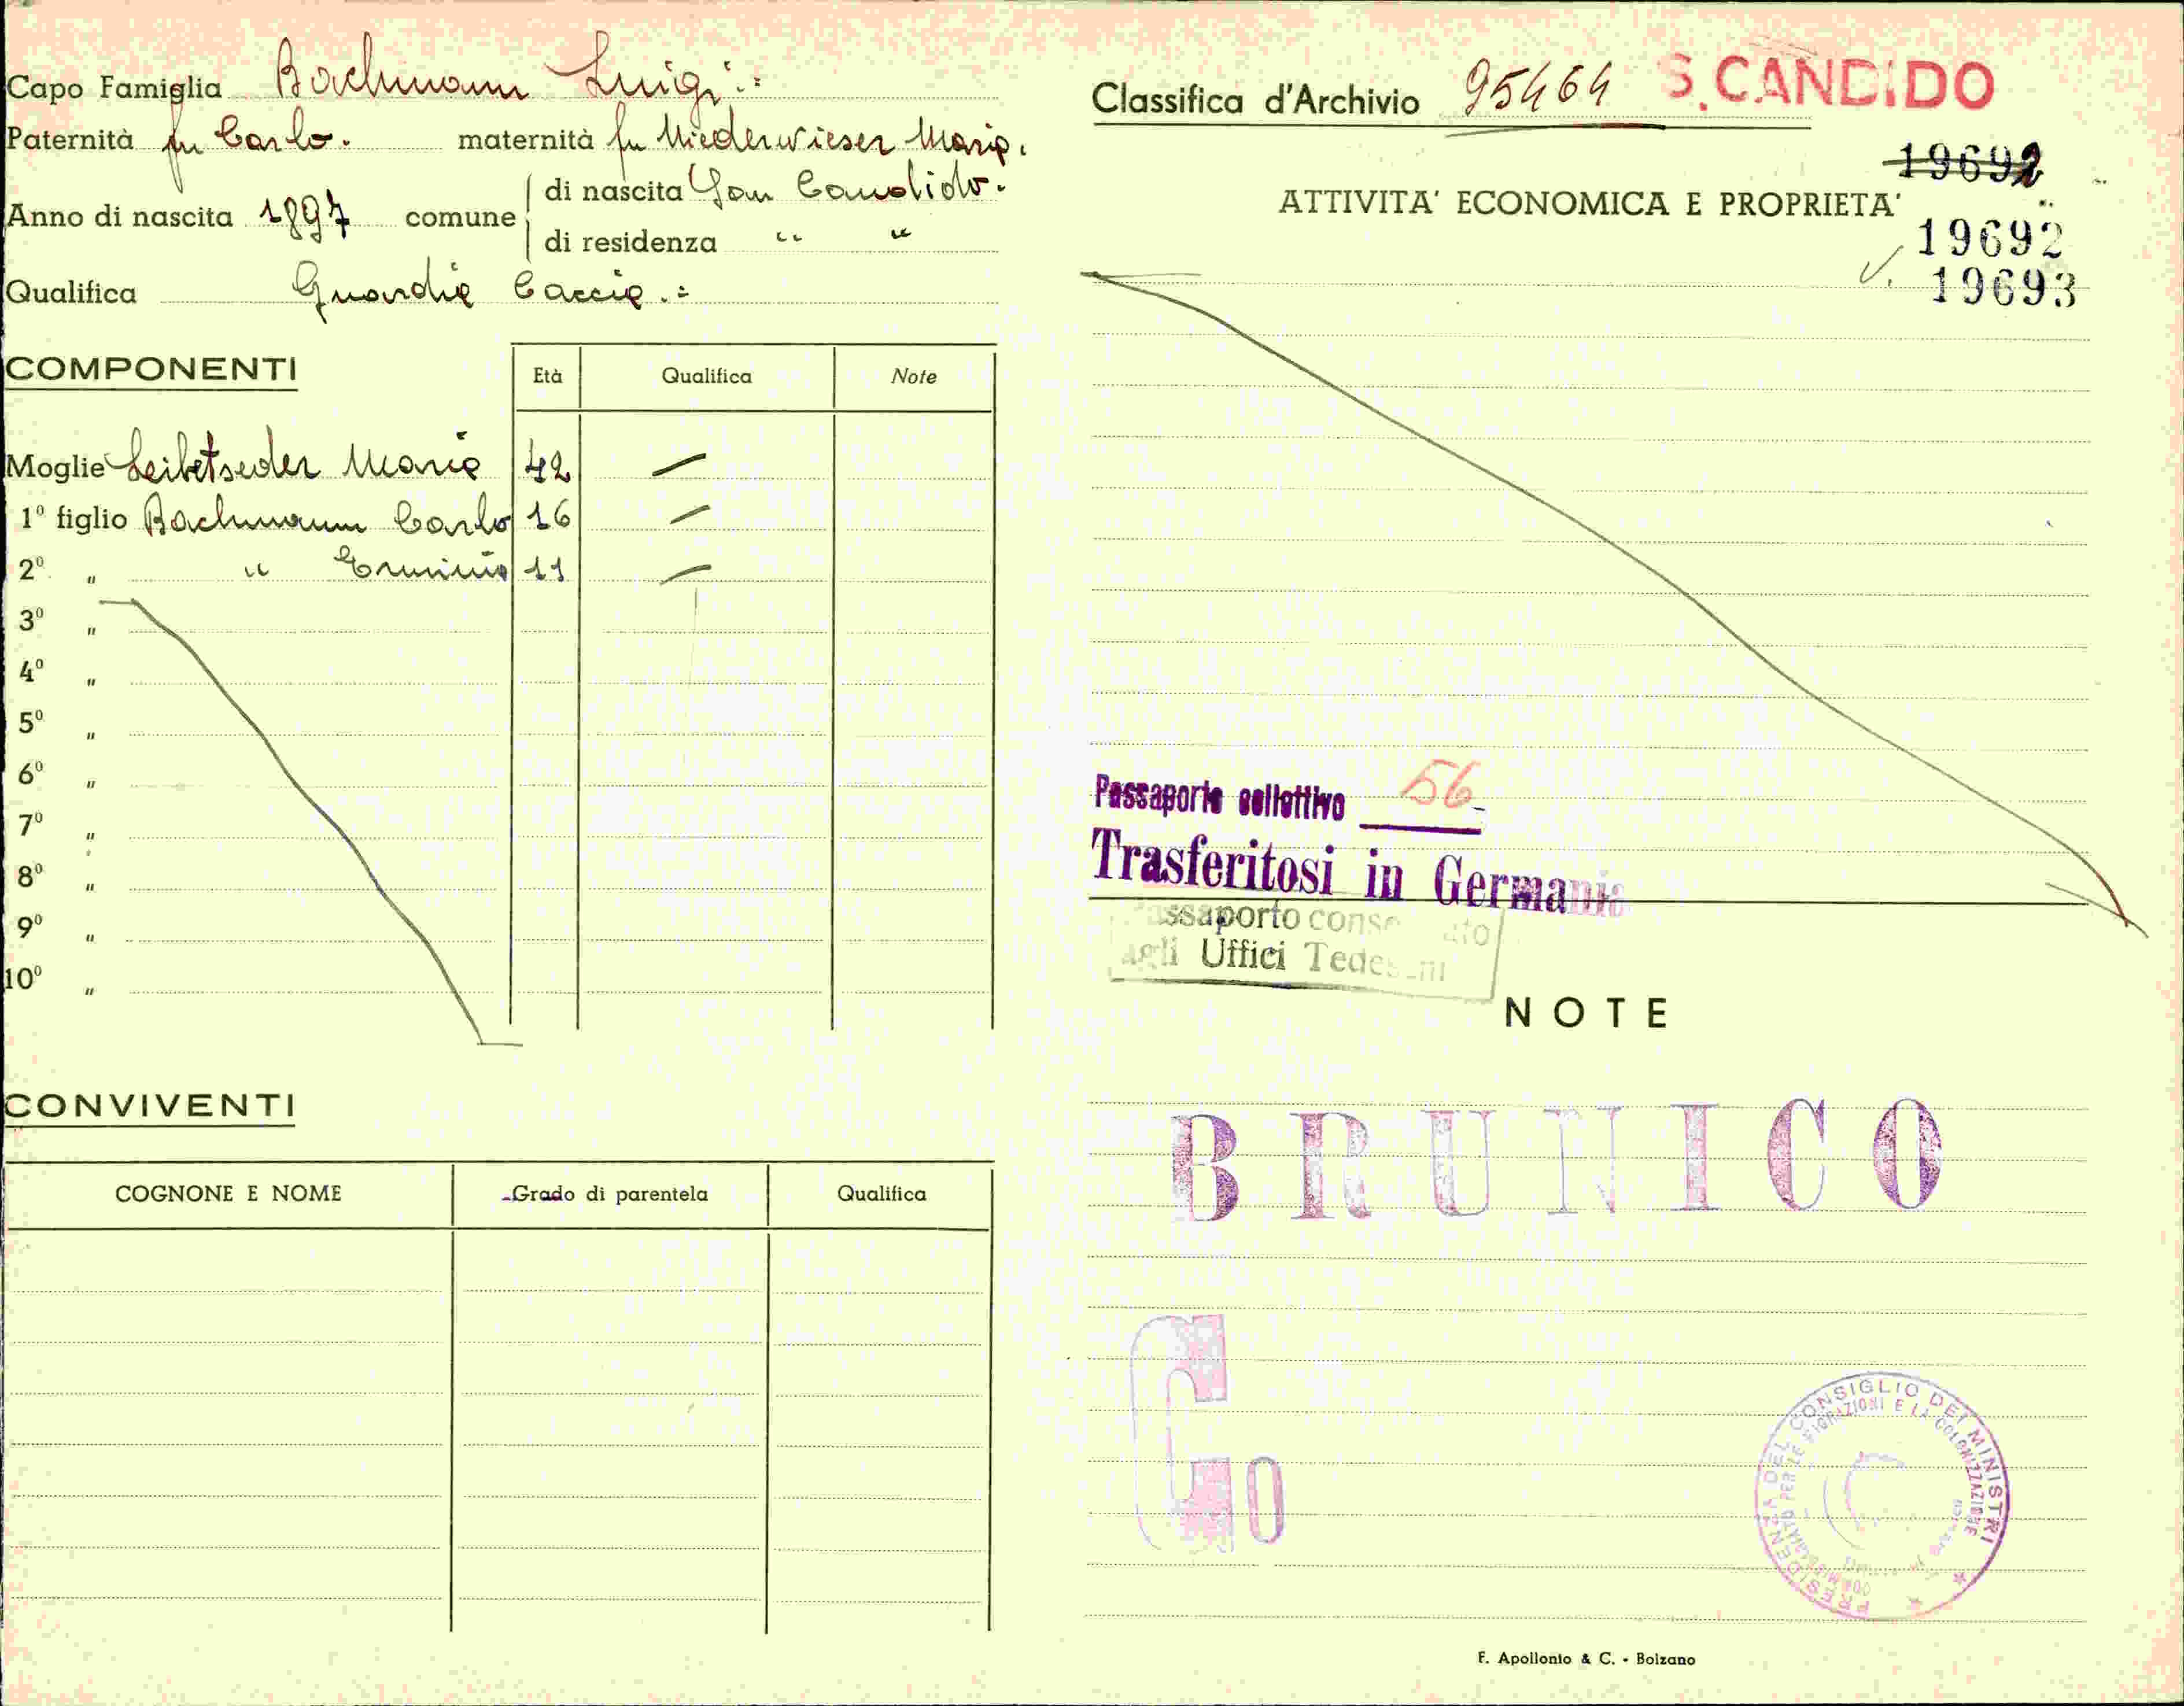 Capo Famiglia Bachmann Luigi.=
Paternità fu Carlo. maternità fu Niederwieser Maria.
Anno di nascita 1897 comune di nascita San Candido.
di residenza " "
Qualifica Guardia Caccia.=
COMPONENTI Età Qualifica Note
Moglie Leibetseder Maria 42 —
1º figlio Bachmann Carlo 16 —
2º " " Erminio 11 —
3º "
4º "
5º "
6º "
7º "
8º "
9º "
10º "
CONVIVENTI
COGNONE E NOME Grado di parentela Qualifica
Classifica d'Archivio 95464 S. CANDIDO
19692
ATTIVITA' ECONOMICA E PROPRIETA'
19692
19693
Passaporto collettivo 56
Trasferitosi in Germania
ssaporto cons
agli Uffici Tedes
NOTE
BRUNICO
G 10
PRESIDENZA DEL CONSIGLIO DEI MINISTRI
PER LE MIGRAZIONI E LA COLONIZZAZIONE
F. Apollonio & C. - Bolzano